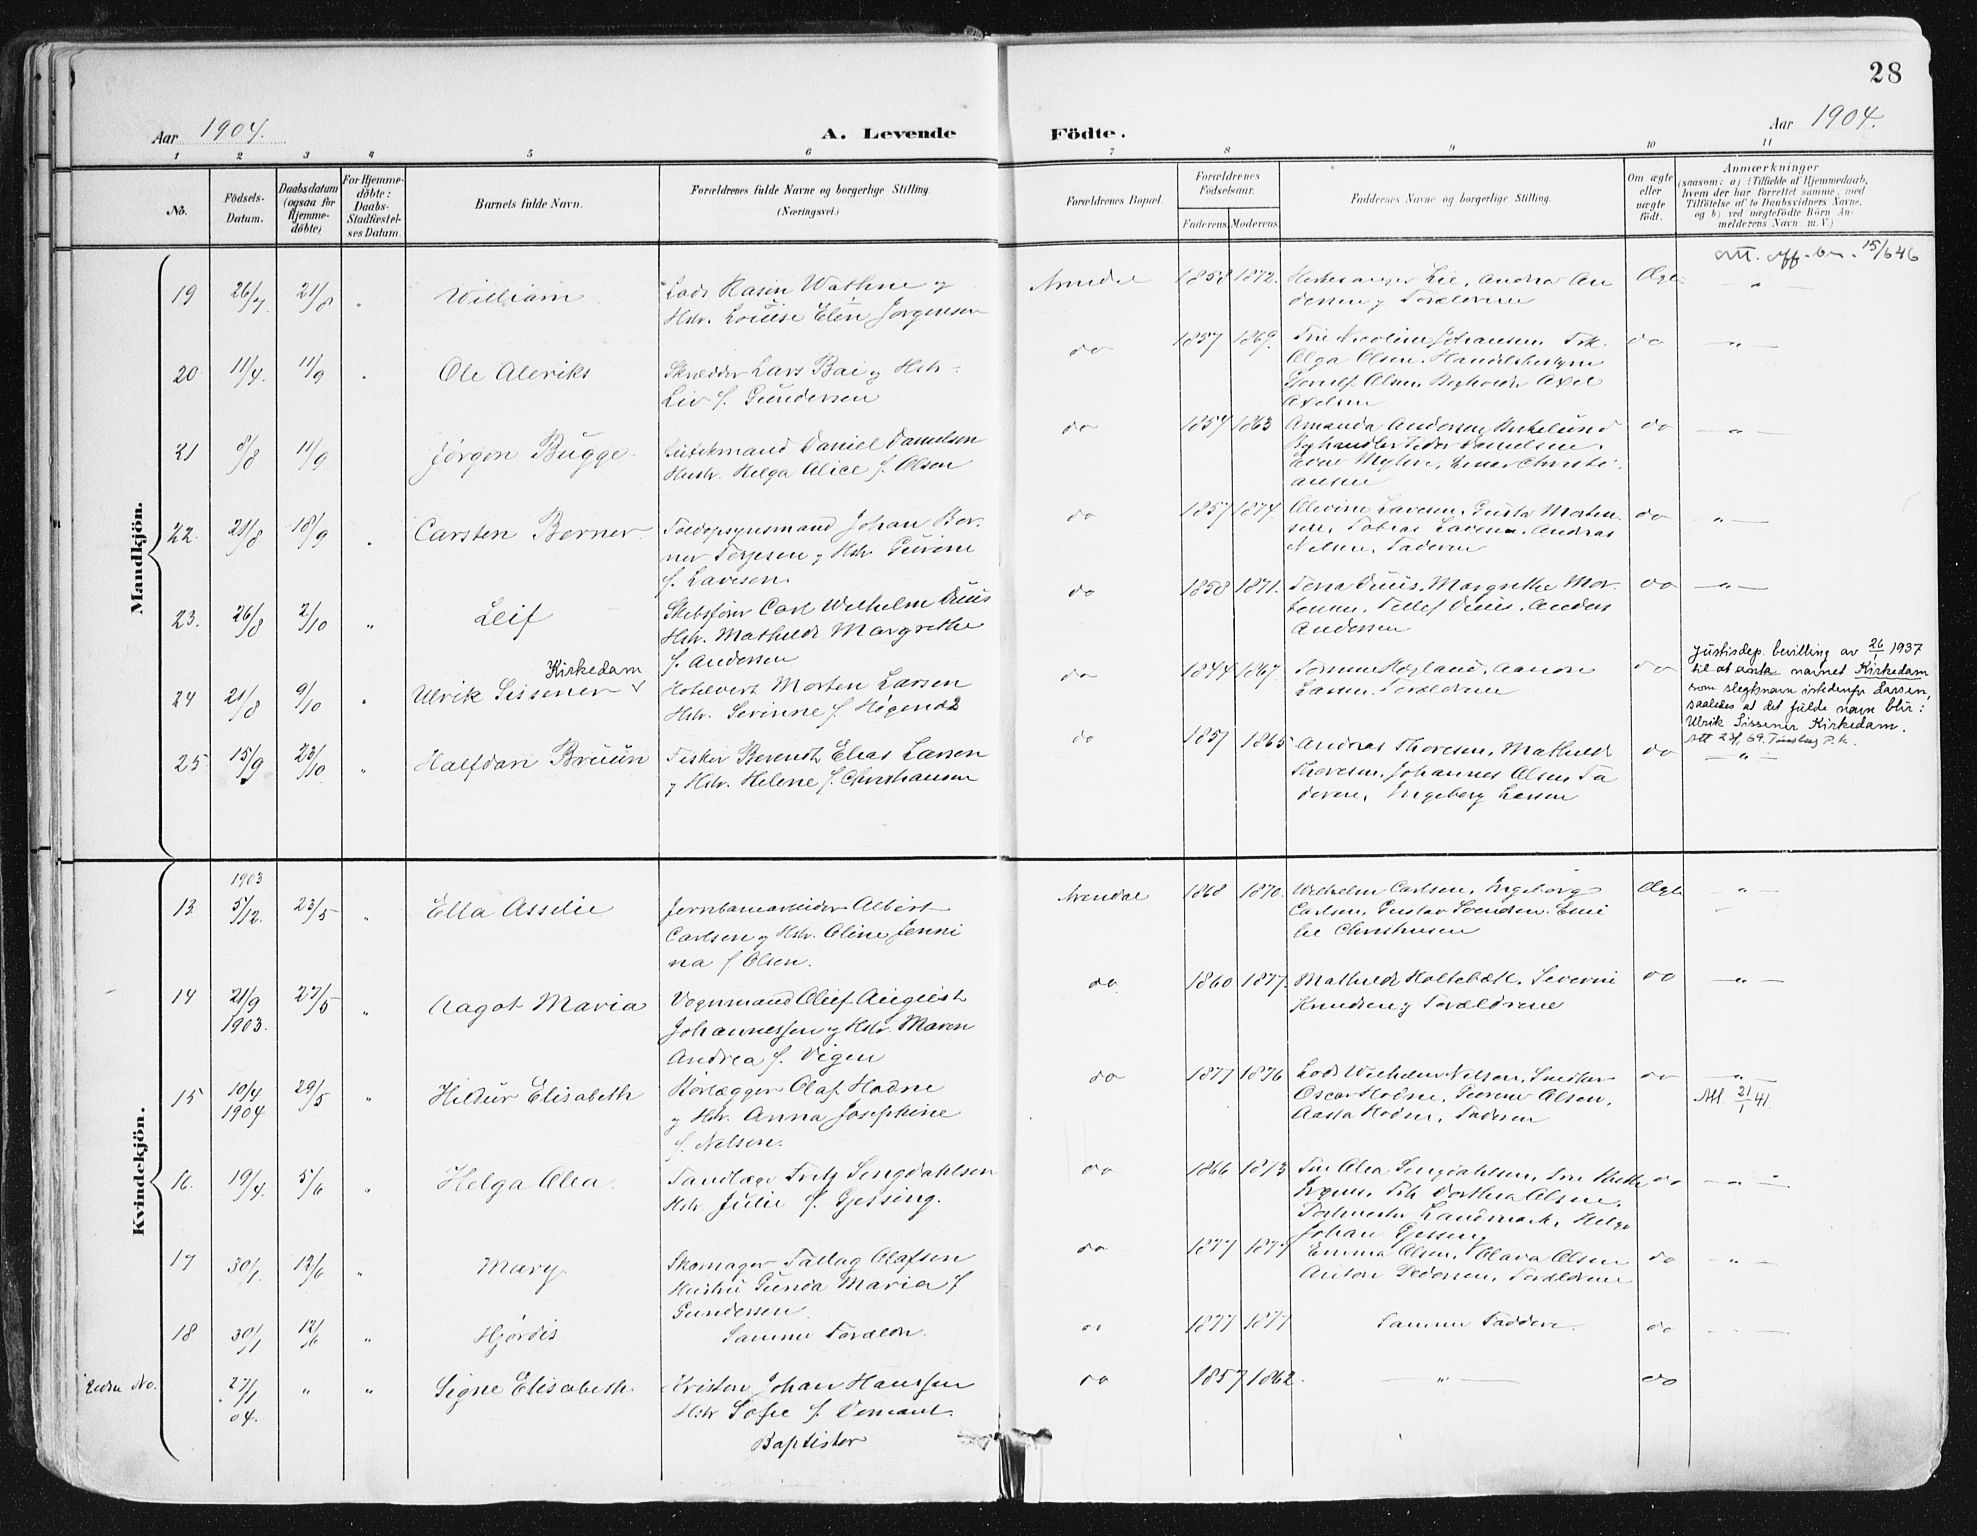 28
Aar 1904.
A. Levende
Födte.
Aar 1904.
1 2 3 4 5 6 7 8 9 10 11
No.
Födsels-
Datum.
Daabsdatum
(ogsaa for
Hjemme-
döbte)
For Hjemme-
döbte:
Daabs-
Stadfæstel-
ses Datum.
Barnets fulde Navn.
Forældrenes fulde Navne og borgerlige Stilling.
(Næringsvei.)
Forældrenes Bopæl.
Forældrenes
Födselsaar.
Faderens Moderens
Faddernes Navne og borgerlige Stilling.
Om ægte
eller
uægte
födt.
Anmærkninger
(saasom: a) i Tilfælde af Hjemmedaab,
hvem der har forrettet samme, med
Tilföielse af to Daabsvidners Navne,
og b) ved uægtefödte Börn An-
melderens Navn m. V.)
Mandkjön.
15/6 46
19 26/7. 21/8 " William
Lods Rasm Wathne og
Hstr. Louise Eline Jørgensen
Arendal 1858 1872.
Lie, Andrea An
dersen og Forældrene
Ægte
20 11/4. 11/9 Ole Aleriks
Skrædder Lars Bai og Hstr.
Liv f. Gundersen
do 1857 1869.
Nicoline Johansen, Frk.
Olga Olsen, Handelsbestyrer
Olsen, Axel
Axelsen
do
21 8/8 11/9 Jørgen Bugge.
Daniel Danielsen
Hustr. Helga Alice f. Olsen
do 1854 1863
Amanda Andersen, Birkelund
Peder Danielsen,
Myhre, Einar Christi
ansen
do
22. 21/8 18/9 Carsten Berner
Toldopsynsmand Johan Ber-
ner Terjesen og Hstr. Gurine
f. Lavesen.
do 1857 1874.
Olivine Lavesen, Gusta Morten
sen, Tobias Lavesen, Andreas
Nelsen, Faderen
do
23. 26/8 2/10 " Leif
Skibsfører Carl Wilhelm Duus
Hstr. Mathilde Margrethe
f. Andersen
do 1858 1871.
Duus, Margrethe Mor
tensen, Detlef Duus, Anders
Andersen
do
24 21/8 9/10 " Ulrik Sissener Kirkedam
Hotelvert Morten Larsen
Hstr. Serinne f. Høgend
do 1844 1867.
Aanon
Larsen, Forældrene
do
Justisdep. bevilling av 26/1 1937
til at anta navnet Kirkedam
som slegtsnavn istedenfor Larsen,
saaledes at det fulde navn blir:
Ulrik Sissener Kirkedam.
25 15/9 23/10 " Halfdan Bruun
Fisker Berendt Elias Larsen
og Hstr. Helene f. Christiansen
do 1857 1865
Andreas Thoresen, Mathilde
Thoresen, Johannes Olsen, Fa
deren, Ingeborg Larsen
do
Kvindekjön.
1903
13. 5/12. 23/5 " Ella Asselie
Jernbanearbeider Albert
Carlsen og Hstr. Oline Jenni
na f. Olsen.
Arendal 1868 1870.
Wilhelm Carlsen, Ingeborg
Carlsen, Gustav Svendsen, Emi
lie Christensen
Ægte
14 21/9 1903. 27/5 " Aagot Maria
Vognmand Oluf August
Johannessen og Hstr. Maren
Andrea f. Vigen
do 1860 1877.
Mathilde Holtebæk, Severine
Knudsen og Forældrene
do
15 10/4 1904 29/5 " Hildur Elisabeth
Rørlægger Olaf Hodne
og Hstr. Anna Josephine
f. Nelsen.
do 1877 1876
Lods Wilhelm Nelsen, Snedker
Oscar Hodne, Olsen,
Aasta Hodne, Faderen
do
Att. 21/1 41.
16. 19/4. 5/6 " Helga Olea.
Tandlæge Fritz Sengdahlsen
Hstr. Julie f. Gjessing.
do 1866 1873
Fru Olea Sengdahlsen, Fru
Frk Dorthea Olsen,
Landmark, Helge
Johan Gjessing
do
17 30/1. 12/6 " Mary.
Skomager Tallag Olafsen
Hustru Gunda Maria f
Gundersen
do 1877 1877
Emma Olsen, Olava Olsen
Anton Pedersen, Forældrene
do
18 30/1 12/6 " Hjørdis
Samme Forældre.
do 1877 1877
Samme Faddere.
do
Uden No. 27/1 04. " " Signe Elisabeth.
Kristen Johan Hanssen
Hstr Sofie f. Vemant.
Baptister
do 1857 1862.
"
do